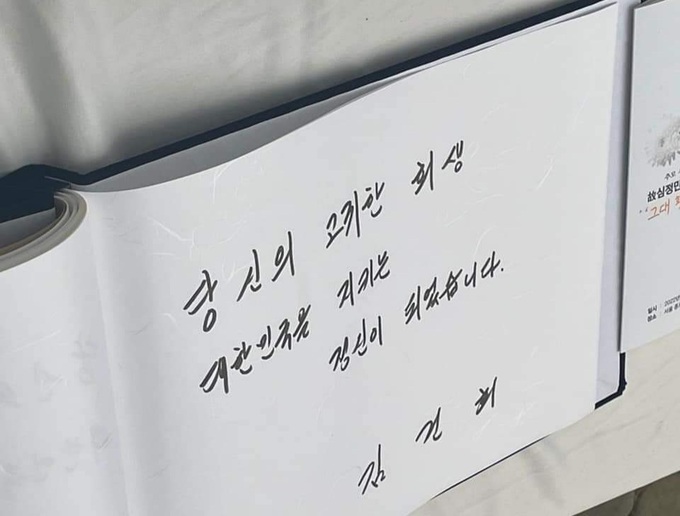 당신의 고귀한 희생
대한민국을 지키는
정신이 되었습니다.
김 건 희
故심정민
"그대
일시
장소